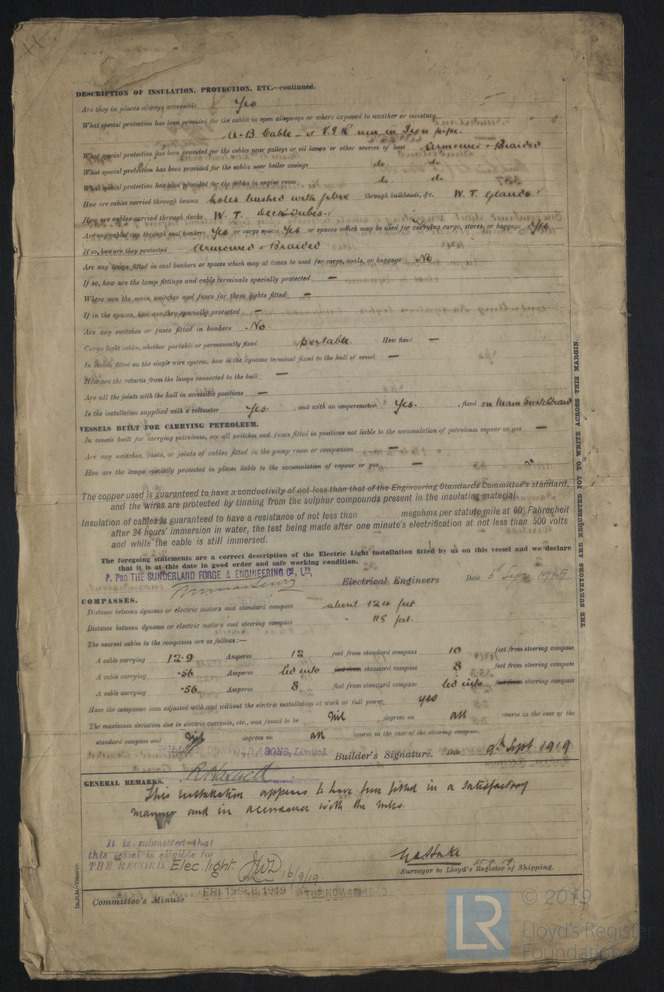 DESCRIPTION OF INSULATION, PROTECTION, ETC.—continued.
Are they in places always accessible Yes
What special protection has been provided for the cables in open alleyways or where exposed to weather or moisture
A-B Cable - & V.I.R run in Iron pipe.
What special protection has been provided for the cables near galleys or oil lamps or other sources of heat Armoured & Braided
What special protection has been provided for the cables near boiler casings do. do.
What special protection has been provided for the cables in engine room do. do.
How are cables carried through beams holes bushed with fibre through bulkheads, &c. W.T. Glands
How are cables carried through decks W.T. Deck Tubes.
Are any cables run through coal bunkers Yes or cargo spaces Yes or spaces which may be used for carrying cargo, stores, or baggage Yes
If so, how are they protected Armoured & Braided
Are any lamps fitted in coal bunkers or spaces which may at times be used for cargo, coals, or baggage No
If so, how are the lamp fittings and cable terminals specially protected —
Where are the main switches and fuses for these lights fitted —
If in the spaces, how are they specially protected —
Are any switches or fuses fitted in bunkers No.
Cargo light cables, whether portable or permanently fixed portable. How fixed —
In vessels fitted on the single wire system, how is the dynamo terminal fixed to the hull of vessel —
How are the returns from the lamps connected to the hull —
Are all the joints with the hull in accessible positions —
Is the installation supplied with a voltmeter Yes. , and with an amperemeter Yes. , fixed on Main Switchboard
VESSELS BUILT FOR CARRYING PETROLEUM.
In vessels built for carrying petroleum, are all switches and fuses fitted in positions not liable to the accumulation of petroleum vapour or gas —
Are any switches, fuses, or joints of cables fitted in the pump room or companion —
How are the lamps specially protected in places liable to the accumulation of vapour or gas —
The copper used is guaranteed to have a conductivity of not less than that of the Engineering Standards Committee's standard,
and the wires are protected by tinning from the sulphur compounds present in the insulating material.
Insulation of cables is guaranteed to have a resistance of not less than megohms per statute mile at 60° Fahrenheit
after 24 hours' immersion in water, the test being made after one minute's electrification at not less than 500 volts
and while the cable is still immersed.
The foregoing statements are a correct description of the Electric Light installation fitted by us on this vessel and we declare
that it is at this date in good order and safe working condition.
P. PRO THE SUNDERLAND FORGE & ENGINEERING Co., LTD,
Electrical Engineers Date 1919
COMPASSES.
Distance between dynamo or electric motors and standard compass about 124 feet
Distance between dynamo or electric motors and steering compass " 118 feet.
The nearest cable to the compasses are as follows:—
A cable carrying 12.9 Amperes 12 feet from standard compass 10 feet from steering compass
A cable carrying .56 Amperes led into feet from standard compass 8 feet from steering compass
A cable carrying .56 Amperes 8 feet from standard compass led into feet from steering compass
Have the compasses been adjusted with and without the electric installation at work at full power yes
The maximum deviation due to electric currents, etc., was found to be Nil degrees on all course in the case of the
standard compass and Nil degrees on all course in the case of the steering compass.
SONS, Limited Builder's Signature. Date 9th Sept. 1919
GENERAL REMARKS.
This installation appears to have been fitted in a satisfactory
manner and in accordance with the rules
It is submitted that
this vessel is eligible for
THE RECORD Elec light. 16/9/19
Surveyor to Lloyd's Register of Shipping.
Committee's Minute
THE SURVEYORS ARE REQUESTED NOT TO WRITE ACROSS THIS MARGIN.
© 2019
LR
Lloyd's Register
Foundation